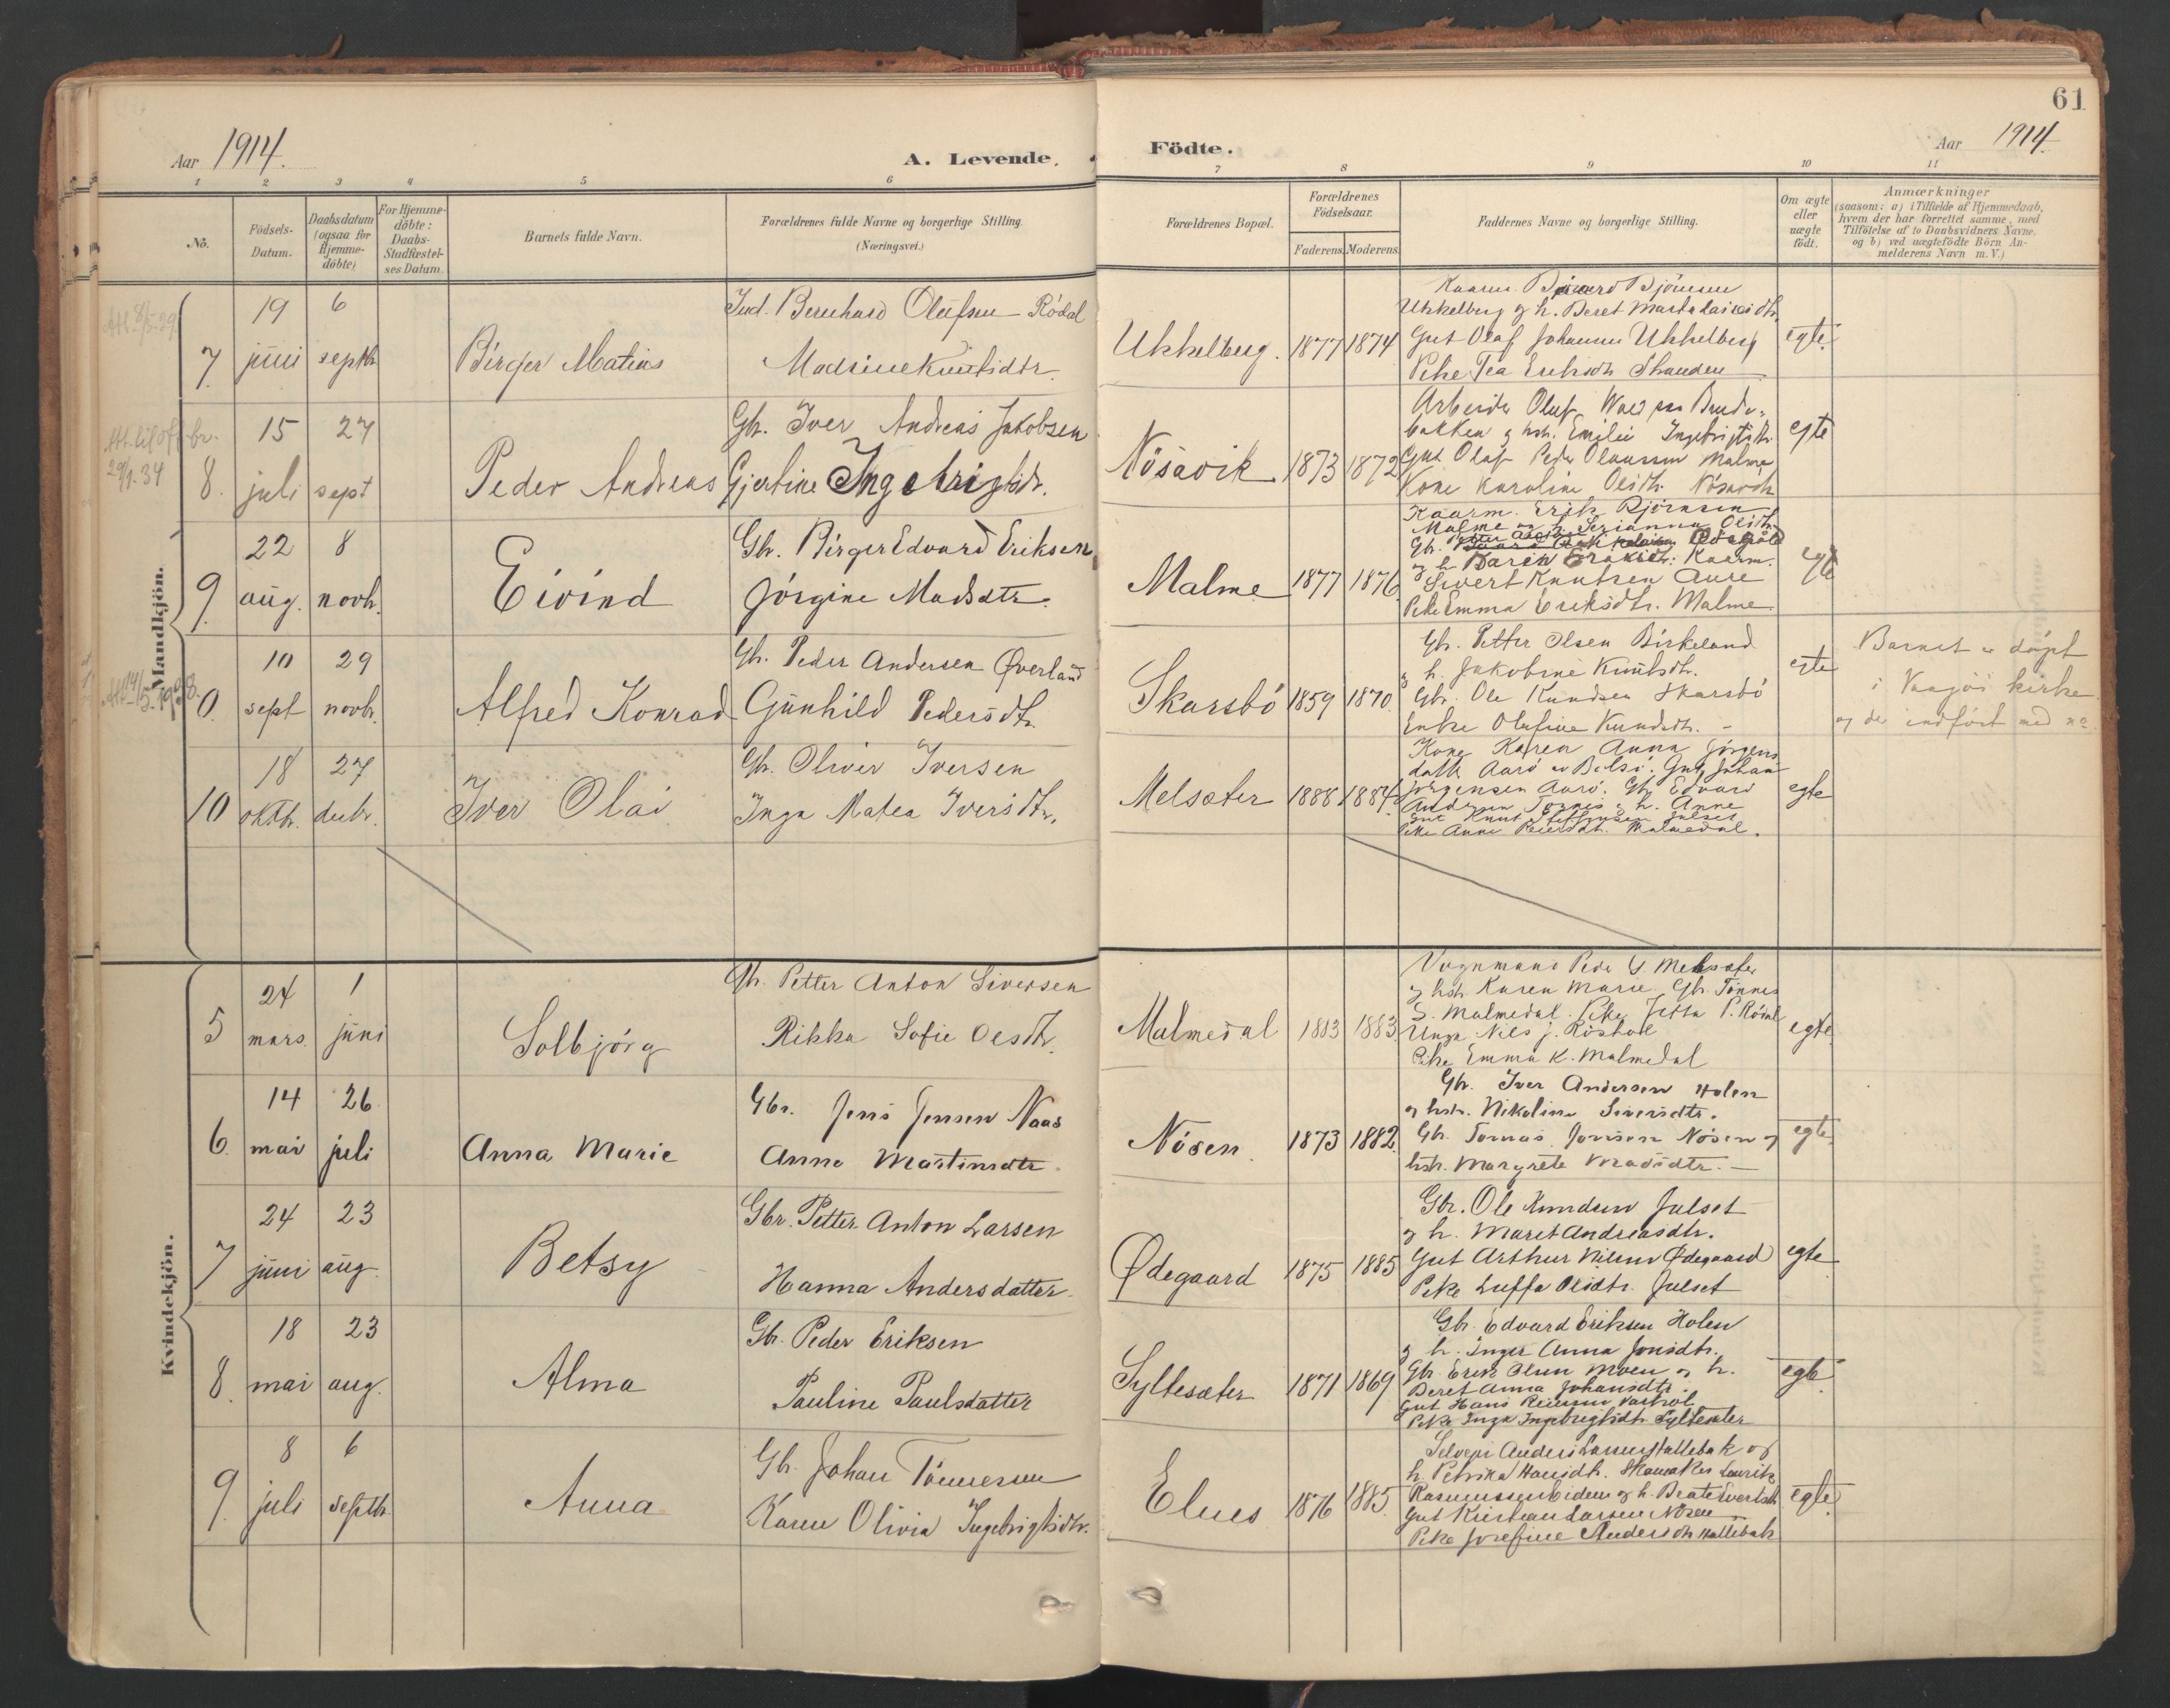 61
Aar 1914.
A. Levende.
Födte.
Aar 1914.
1 2 3 4 5 6 7 8 9 10 11
No.
Födsels-
Datum.
Daabsdatum
(ogsaa for
Hjemme-
döbte)
For Hjemme-
döbte:
Daabs-
Stadfæstel-
ses Datum.
Barnets fulde Navn.
Forældrenes fulde Navne og borgerlige Stilling.
(Næringsvei.)
Forældrenes Bopæl.
Forældrenes
Födselsaar.
Faderens. Moderens.
Faddernes Navne og borgerlige Stilling.
Om ægte
eller
uægte
födt.
Anmærkninger
(saasom: a) i Tilfælde af Hjemmedaab,
hvem der har forrettet samme, med
Tilföielse af to Daabsvidners Navne.
og b) ved uægtefödte Börn An-
melderens Navn m.V.)
Mandkjön.
Att. 8/5-29
7.
19 juni
6 septbr.
Birger Matias
Ind. Bernhard Olufsen Rödal
Madsine Knutsdtr.
Ukkelberg.
1877 1874
Ukkelberg og h. Beret Marta
Gut Olaf Johannes Ukkelberg
Pike Tea Eriksdtr
egte.
29/1.34
8.
15 juli
27 sept
Peder Andreas
Gbr. Iver Andreas Jakobsen
Gjertine Ingebrigtsdtr.
Nösavik
1873 1872
Arbeider Oluf
bakken og hstr. Emilie Ingebrigtsdtr.
Gut Olaf Peder Olaussen Malme
Kone Karoline Olsdtr. Nösavik
egte
9.
22 aug.
8 novbr.
Eivind
Gbr. Birger Edvard Eriksen
Jörgine Madsdtr.
Malme
1877 1876
Kaarm. Erik Björnsen
Malme og h. Serianna Olsdtr.
Gbr.
og h. Karen Kaarm.
Sivert Knutsen Aure
Pike Emma Eriksdtr. Malme
egte
Att. 14/5-1938.
0.
10 sept
29 novbr.
Alfred Konrad
Gbr. Peder Andersen Øverland
Gunhild Pedersdtr.
Skarsbö
1859 1870.
Gbr. Petter Olsen Birkeland
og h. Jakobine Knutsdtr.
Gbr. Ole Knudsen Skarsbö
Enke Olufine Knudsdtr. -
egte
Barnet er döpt
i Vaagöi kirke
og der indfört med no
10
18 oktbr.
27 decbr.
Iver Olai
Gbr. Oliver Iversen
Inga Matea Iversdtr.
Melsæter
1888 1884
Kone Karen Anna Jörgens
datter Aarö Gut Johan
Jörgensen Aarö. Gbr. Edvard
Andersen Tornes og h. Anne
Gut Knut Steffensen Julset
Pike Anne Malmedal.
egte
Kvindekjön.
5
24 mars.
1 juni
Solbjörg
Gbr. Petter Anton Siversen
Rikka Sofie Olsdtr.
Malmedal
1883 1883.
Vognmand Peder Melsæter
og hstr. Karen Marie. Gbr. Tönnes
S. Malmedal. Pike Jetta P. Rödal
Unge Nils J. Röshol
Pike Emma K. Malmedal
egte
6.
14 mai
26. juli
Anna Marie
Gbr. Jens Jensen Naas
Anne Martinsdtr.
Nösen.
1873 1882.
Gbr. Iver Andersen Holen
og hstr. Nikoline Siversdtr.
Gbr. Tomas Jonsen Nösen og
hstr. Margrete Madsdtr. -
egte.
7
24 juni
23 aug.
Betsy
Gbr. Petter Anton Larsen
Hanna Andersdatter
Ødegaard
1875 1885
Gbr. Ole Knudsen Julset
og h. Maret Andreasdtr.
Gut Arthur Nilsen Ødegaard
Pike Luffa Olsdtr. Julset
egte
8.
18 mai
23 aug.
Alma
Gbr. Peder Eriksen
Pauline Paulsdatter
Syltesæter
1871 1869
Gbr. Edvard Eriksen Holen
og h. Inger Anna Jonsdtr.
Gbr. Erik Olsen Moen og h.
Beret Anna Johansdtr.
Gut Hans
Pike Inga Ingebrigtsdtr. Syltesæter
egte.
9.
8 juli
6 septbr.
Anna
Gbr. Johan Tönnesen
Karen Olivia Ingebrigtsdtr.
Elnes
1876 1885
Selveier Anders Larsen Hallebak og
h. Petrika Hansdtr. Skomaker Laurits
Rasmussen Eiden og h. Beate Evertsdtr
Gut Kristian Larsen Nösen
Pike Josefine Andersdtr Hallebak
egte.